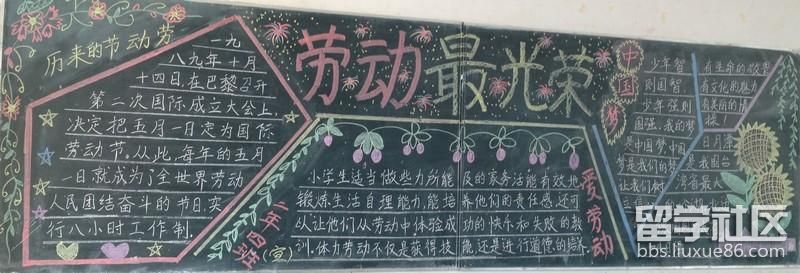 劳动最光荣
历来的节动劳
一九
八九年十月
十四日在巴黎召开
第二次国际成立大会上,
决定把五月一日定为国际
劳动节。从此,每年的五月
一日就成为了全世界劳动
人民团结奋斗的节日,实
行八小时工作制.
二年四班
(宣)
小学生适当做些力所能及的家务活能有效地
锻炼生活自理能力,能培养他们的责任感,还可
以让他们从劳动中体验成功的快乐和失败的教
训,体力劳动不仅是获得技能,还是进行道德的培养.
爱劳动
中国梦
少年智
则国智
少年强则
国强.我的梦
是中国梦,中国
梦是我们的梦
让我们树
有生命的
有文化的魅力
有美丽的情
日月潭
是我国台
湾省最大
留学社区
bbs.liuxue86.com